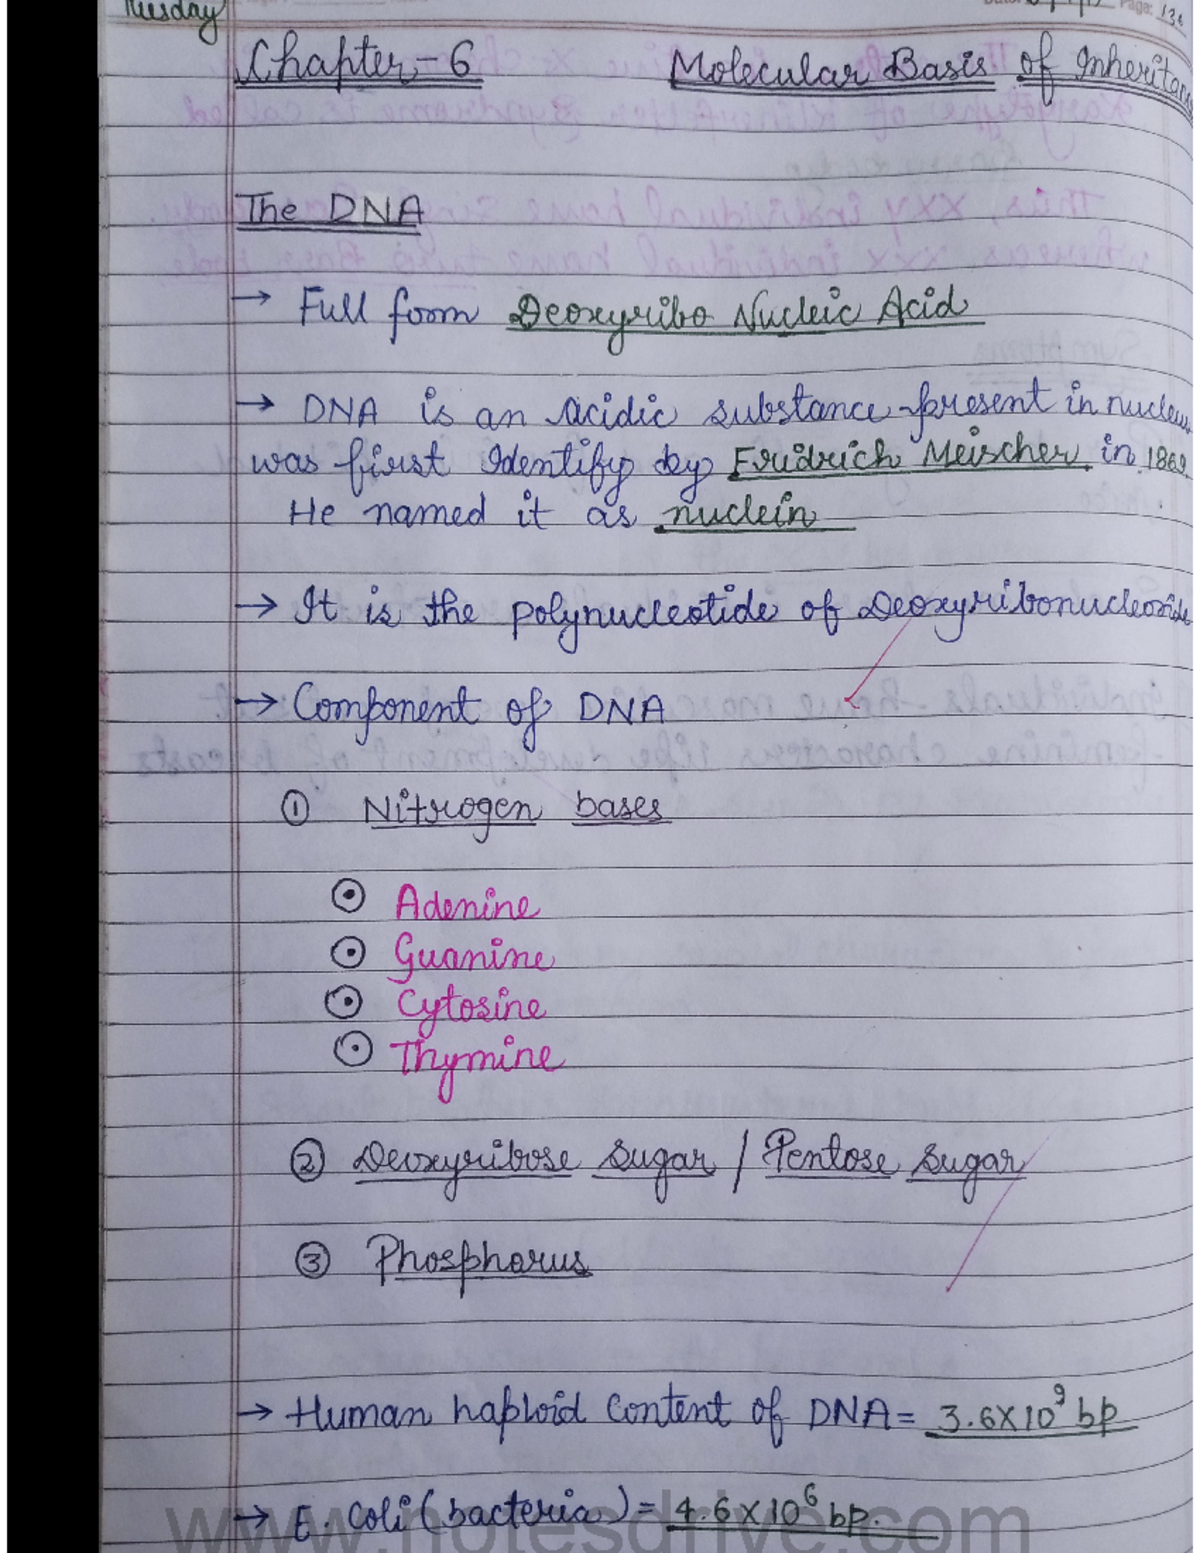 Tuesday
Page: 
Chapter-6 Molecular Basis of Inheritan
The DNA
→ Full form Deoxyribo Nucleic Acid
→ DNA is an acidic substance present in nucleus
was first Identify by Fridrich Meischer in 1869
He named it as nuclein
→ It is the polynucleotide of Deoxyribonucleoside
→ Component of DNA
① Nitrogen bases
⊙ Adenine
⊙ Guanine
⊙ Cytosine
⊙ Thymine
② Deoxyribose sugar / Pentose sugar
③ Phosphorus
→ Human haploid Content of DNA = 3.6×10⁹ bp
→ E. Coli (bacteria) = 4.6×10⁶ bp.
www.notesdrive.com